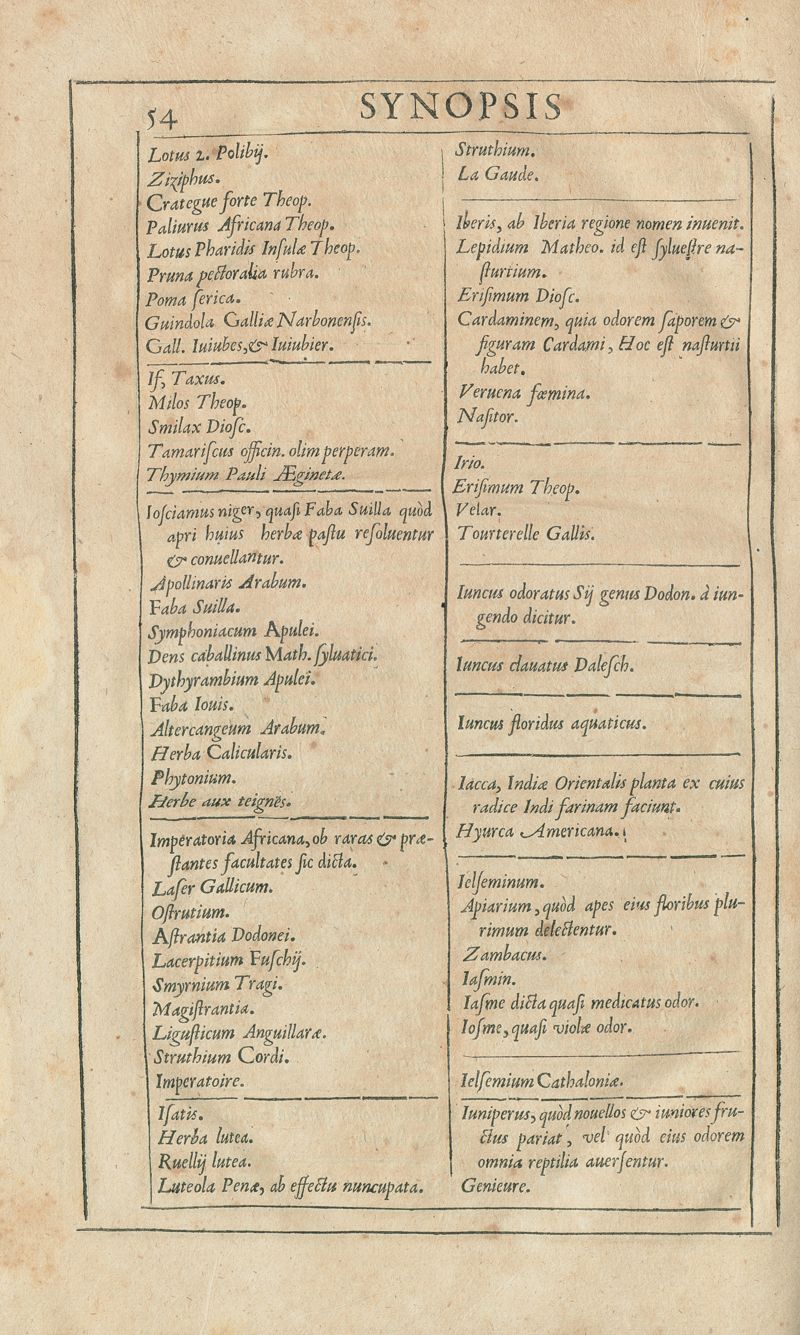 54
SYNOPSIS
Lotus 2. Polibij.
Ziziphus.
Crategue forte Theop.
Paliurus Africana Theop.
Lotus Pharidis Inſulæ Theop.
Pruna pectoralia rubra.
Poma ſerica.
Guindola Galliæ Narbonenſis.
Gall. Iuiubes,& Iuiubier.
If, Taxus.
Milos Theop.
Smilax Dioſc.
Tamariſcus officin. olim perperam.
Thymium Pauli Æginetæ.
Ioſciamus niger, quaſi Faba Suilla quòd
apri huius herbæ paſtu reſoluentur
& conuellantur.
Apollinaris Arabum.
Faba Suilla.
Symphoniacum Apulei.
Dens caballinus Math. ſyluatici.
Dythyrambium Apulei.
Faba Iouis.
Altercangeum Arabum.
Herba Calicularis.
Phytonium.
Herbe aux teignës.
Imperatoria Africana, ob raras & præ-
ſtantes facultates ſic dicta.
Laſer Gallicum.
Oſtrutium.
Aſtrantia Dodonei.
Lacerpitium Fuſchij.
Smyrnium Tragi.
Magiſtrantia.
Liguſticum Anguillaræ.
Struthium Cordi.
Imperatoire.
Iſatis.
Herba lutea.
Ruellij lutea.
Luteola Penæ, ab effectu nuncupata.
Struthium.
La Gaude.
Iberis, ab Iberia regione nomen inuenit.
Lepidium Matheo. id eſt ſylueſtre na-
ſturtium.
Eriſimum Dioſc.
Cardaminem, quia odorem ſaporem &
figuram Cardami, Hoc eſt naſturtii
habet.
Veruena fœmina.
Naſitor.
Irio.
Eriſimum Theop.
Velar.
Tourterelle Gallis.
Iuncus odoratus Sij genus Dodon. à iun-
gendo dicitur.
Iuncus clauatus Daleſch.
Iuncus floridus aquaticus.
Iacca, Indiæ Orientalis planta ex cuius
radice Indi farinam faciunt.
Hyurca Americana.
Ielſeminum.
Apiarium, quòd apes eius floribus plu-
rimum delectentur.
Zambacus.
Iaſmin.
Iaſme dicta quaſi medicatus odor.
Ioſme, quaſi violæ odor.
Ielſemium Cathaloniæ.
Iuniperus, quòd nouellos & iuniores fru-
ctus pariat, vel quòd eius odorem
omnia reptilia auerſentur.
Genieure.